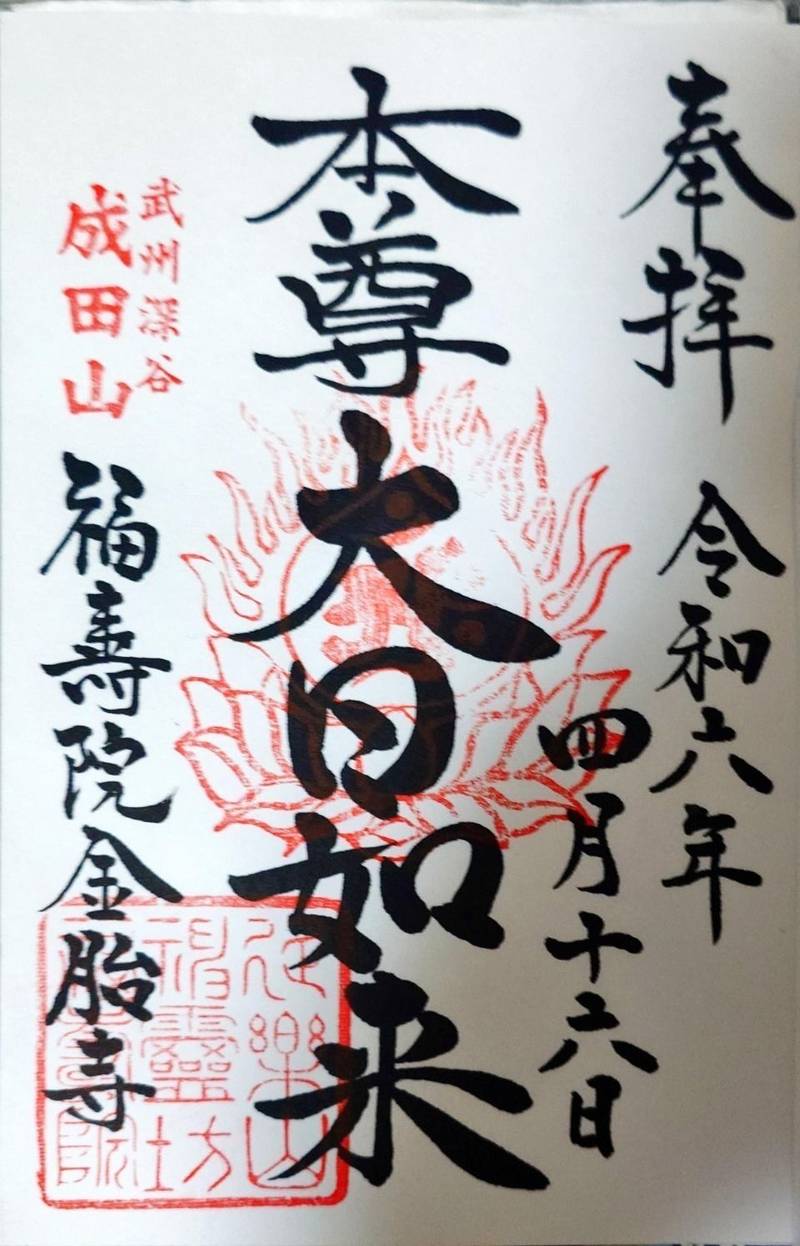 奉拝 令和六年
四月十六日
本尊大日如来
武州深谷
成田山
福寿院金胎寺